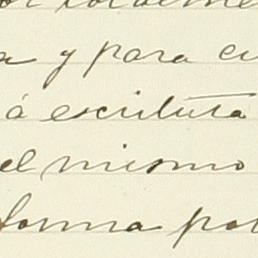 a y para cu
á escritura
el mismo
forma por